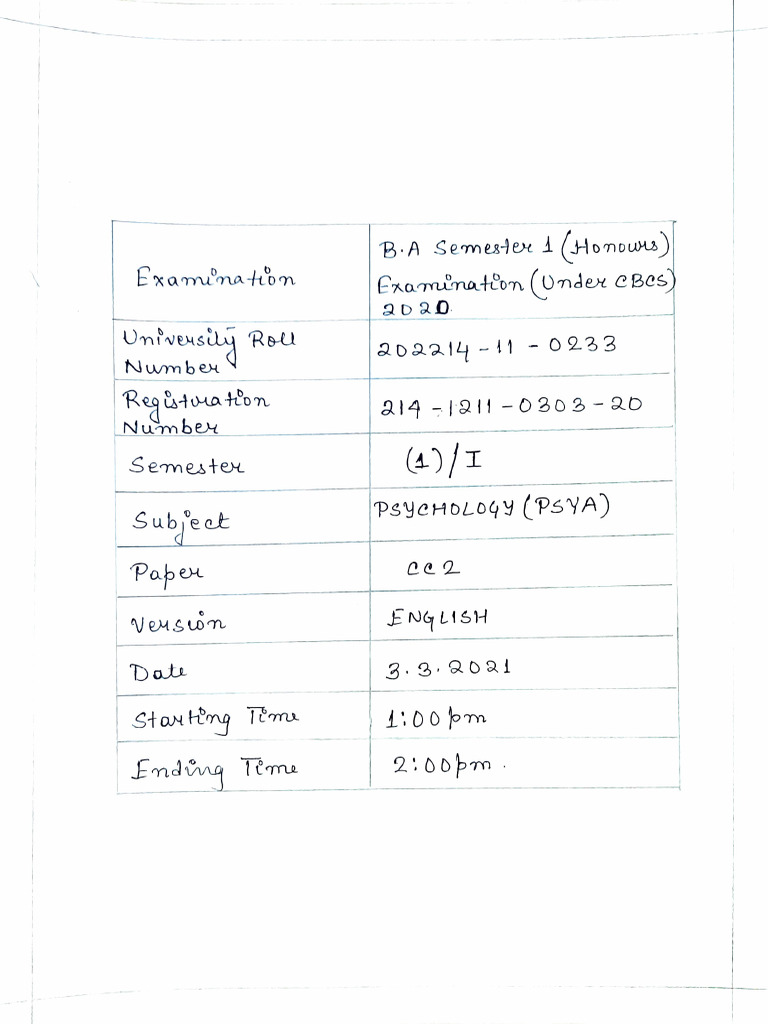 Examination
B.A Semester 1 (Honours)
Examination (Under CBCS)
2020
University Roll
Number
202214-11-0233
Registration
Number
214-1211-0303-20
Semester
(1)/I
Subject
PSYCHOLOGY (PSYA)
Paper
CC2
Version
ENGLISH
Date
3.3.2021
Starting Time
1:00 pm
Ending Time
2:00pm.